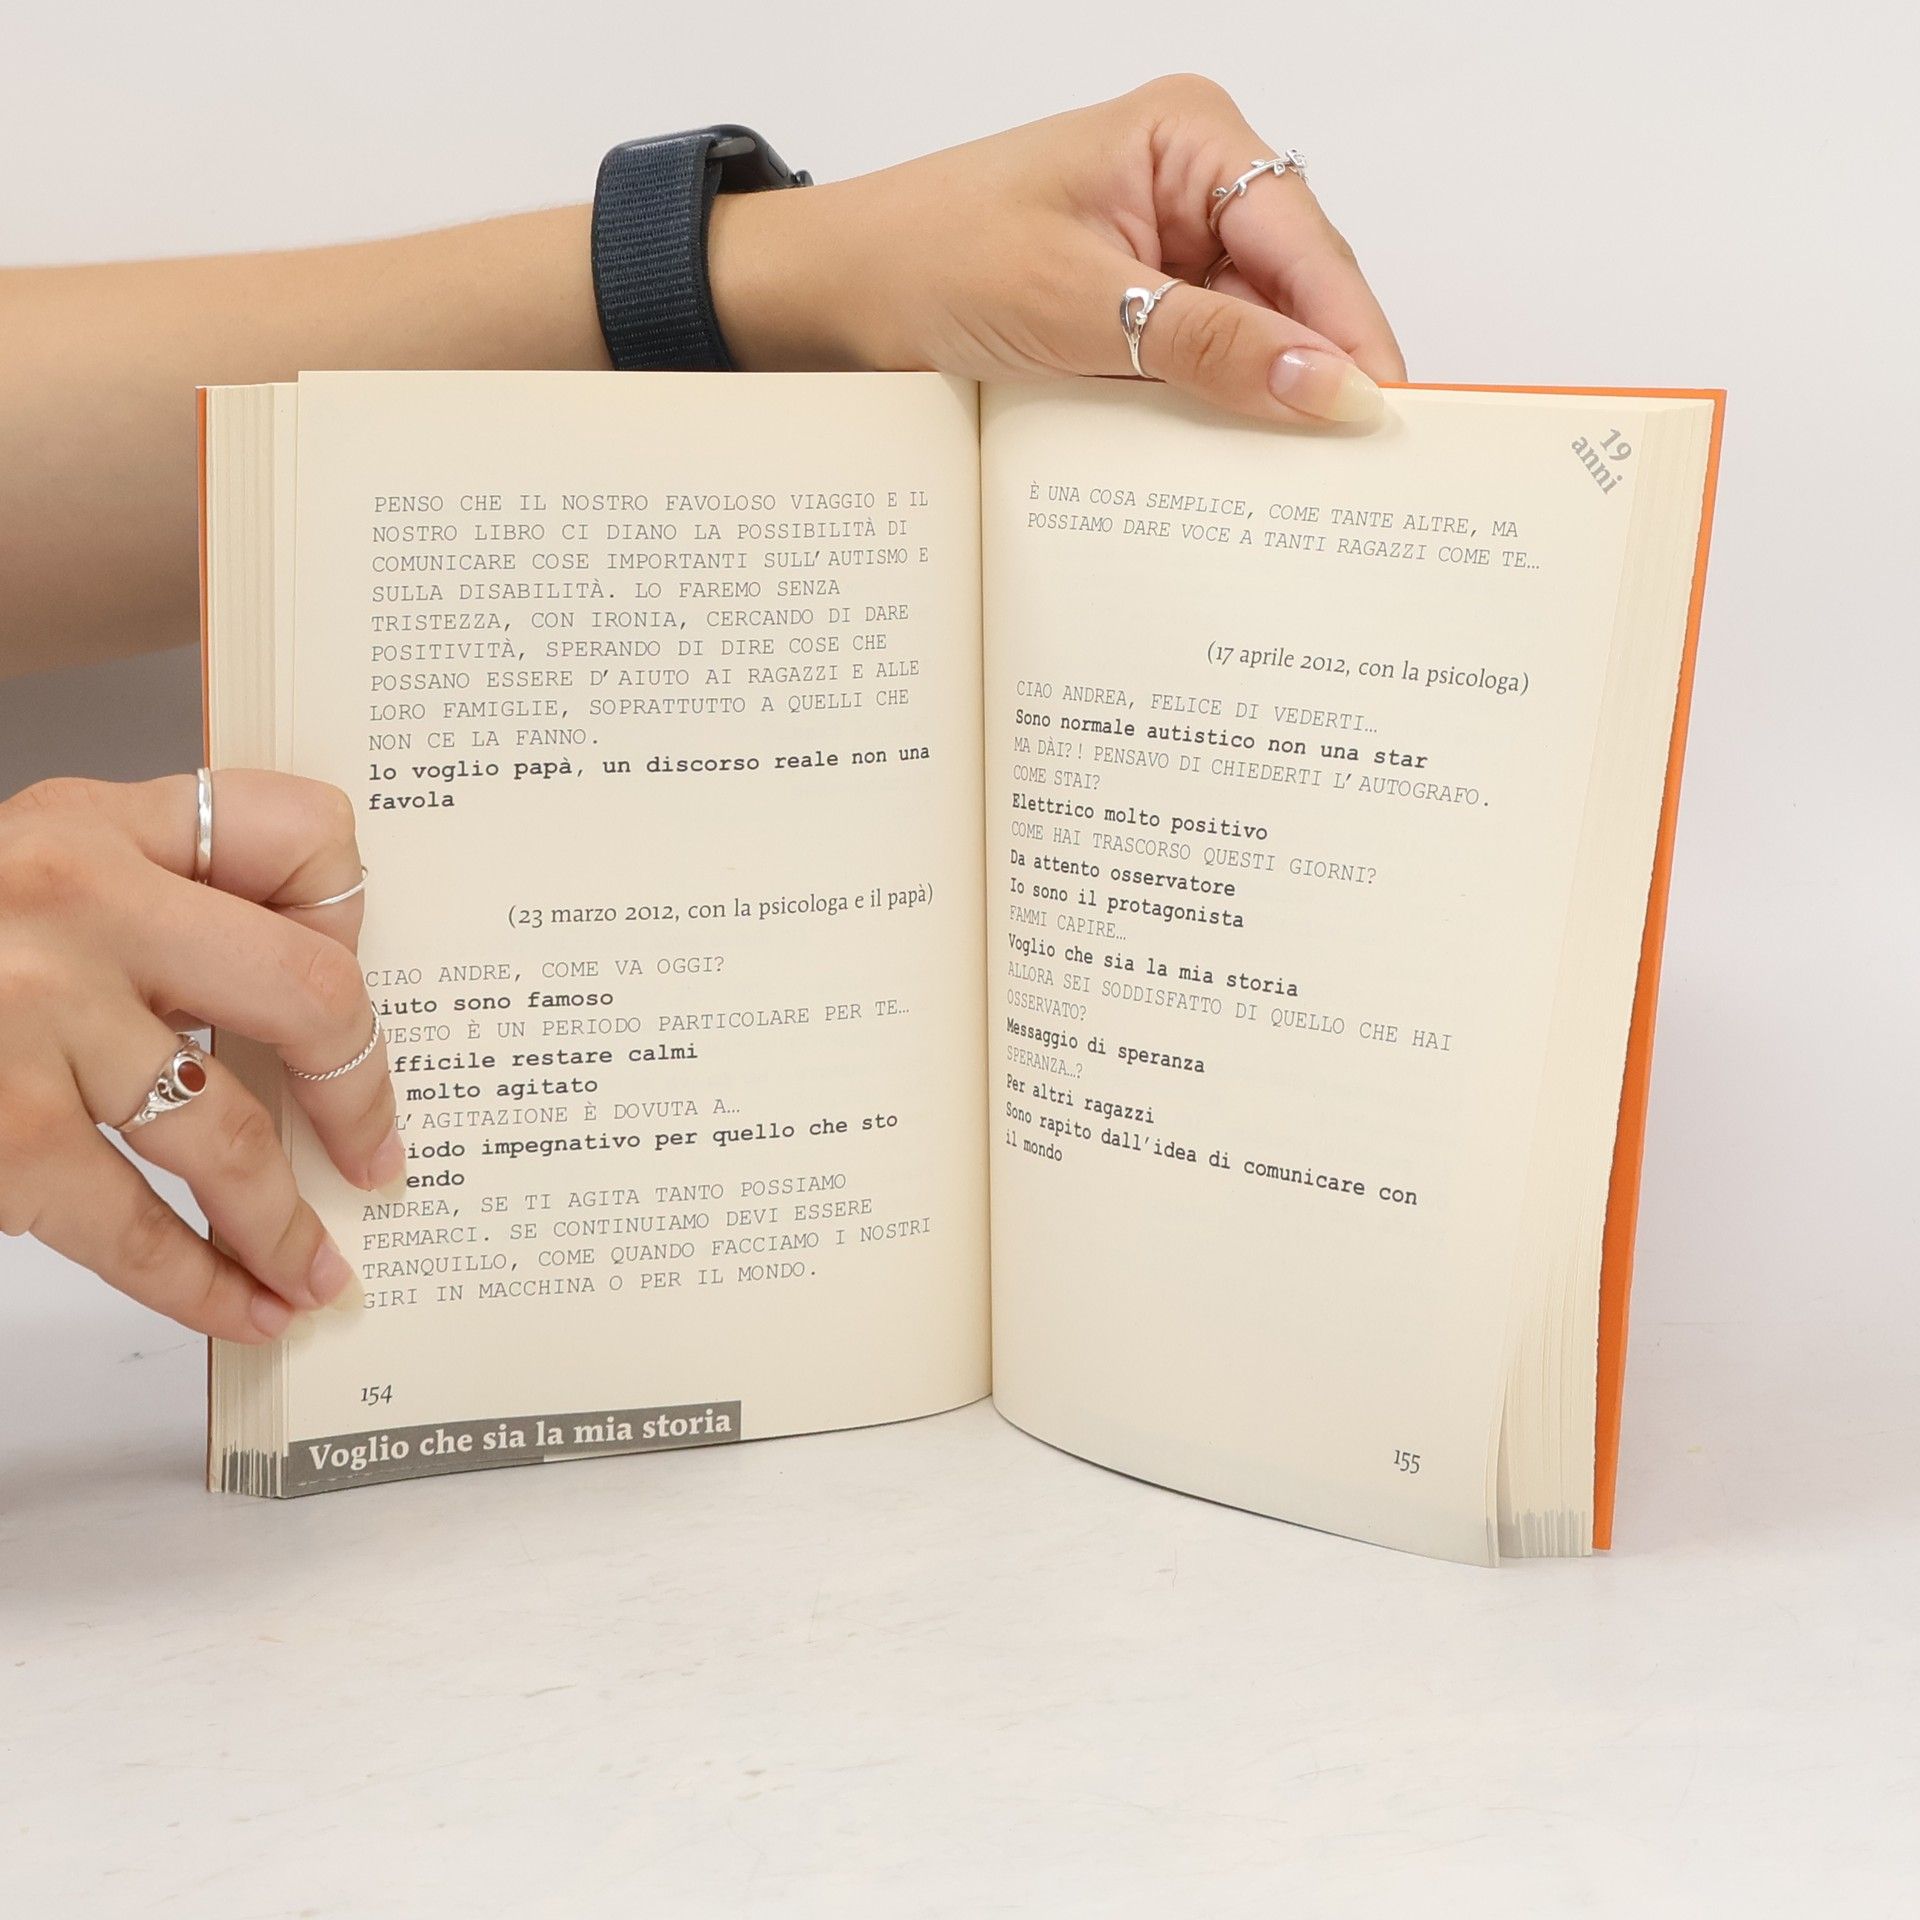 PENSO CHE IL NOSTRO FAVOLOSO VIAGGIO E IL
NOSTRO LIBRO CI DIANO LA POSSIBILITÀ DI
COMUNICARE COSE IMPORTANTI SULL'AUTISMO E
SULLA DISABILITÀ. LO FAREMO SENZA
TRISTEZZA, CON IRONIA, CERCANDO DI DARE
POSITIVITÀ, SPERANDO DI DIRE COSE CHE
POSSANO ESSERE D'AIUTO AI RAGAZZI E ALLE
LORO FAMIGLIE, SOPRATTUTTO A QUELLI CHE
NON CE LA FANNO.
lo voglio papà, un discorso reale non una
favola
(23 marzo 2012, con la psicologa e il papà)
CIAO ANDRE, COME VA OGGI?
Aiuto sono famoso
È UN PERIODO PARTICOLARE PER TE…
restare calmi
molto agitato
L'AGITAZIONE È DOVUTA A…
impegnativo per quello che sto
ANDREA, SE TI AGITA TANTO POSSIAMO
FERMARCI. SE CONTINUIAMO DEVI ESSERE
TRANQUILLO, COME QUANDO FACCIAMO I NOSTRI
GIRI IN MACCHINA O PER IL MONDO.
154
Voglio che sia la mia storia
19
anni
È UNA COSA SEMPLICE, COME TANTE ALTRE, MA
POSSIAMO DARE VOCE A TANTI RAGAZZI COME TE…
(17 aprile 2012, con la psicologa)
CIAO ANDREA, FELICE DI VEDERTI…
Sono normale autistico non una star
MA DÀI?! PENSAVO DI CHIEDERTI L'AUTOGRAFO.
COME STAI?
Elettrico molto positivo
COME HAI TRASCORSO QUESTI GIORNI?
Da attento osservatore
Io sono il protagonista
FAMMI CAPIRE…
Voglio che sia la mia storia
ALLORA SEI SODDISFATTO DI QUELLO CHE HAI
OSSERVATO?
Messaggio di speranza
SPERANZA…?
Per altri ragazzi
Sono rapito dall'idea di comunicare con
il mondo
155